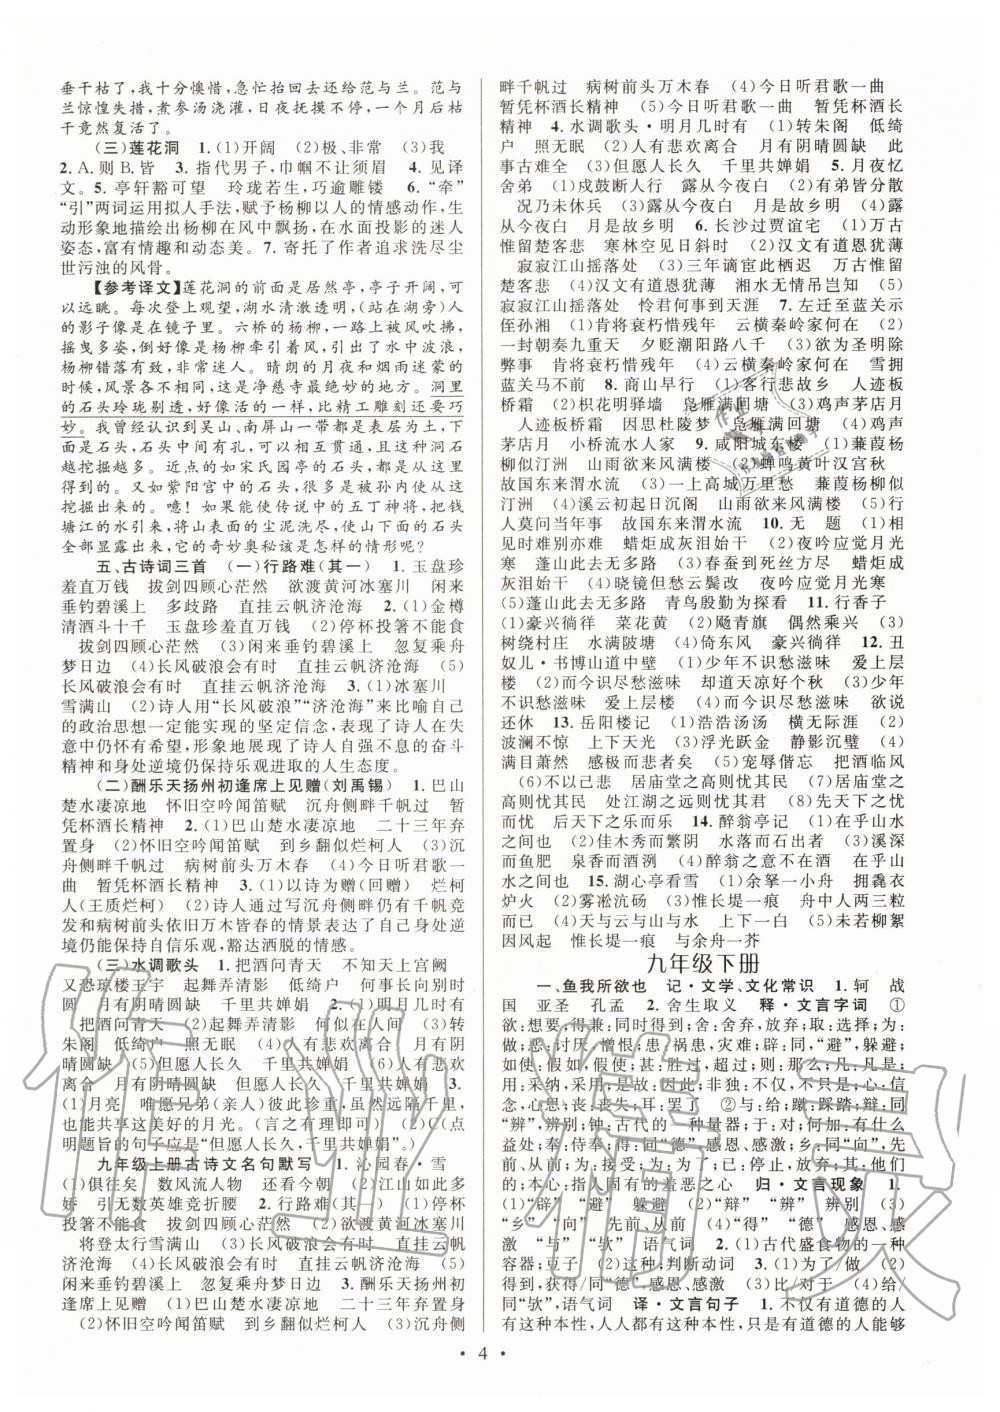 垂干枯了，我十分懊惜，急忙抬回去还给范与兰。范与
兰惊惶失措，煮参汤浇灌，日夜抚摸不停，一个月后枯
干竟然复活了。
（三）莲花洞　1. (1)开阔　(2)极、非常　(3)我
2. A. 则 B. 皆　3. 指代男子，巾帼不让须眉　4. 见译
文。5. 亭轩豁可望　玲珑若生，巧逾雕镂　6. “牵”
“引”两词运用拟人手法，赋予杨柳以人的情感动作，生
动形象地描绘出杨柳在风中飘扬，在水面投影的迷人
姿态，富有情趣和动态美。7. 寄托了作者追求洗尽尘
世污浊的风骨。
【参考译文】莲花洞的前面是居然亭，亭子开阔，可
以远眺。每次登上观望，湖水清激透明，（站在湖旁）人
的影子像是在镜子里。六桥的杨柳，一路上被风吹拂，
摇曳多姿，倒好像是杨柳牵引着风，引来了水中波浪，
杨柳错落有致，很是美丽。晴朗的月夜和烟雨迷蒙的
时候，风景又大不一样，这是净慈寺最绝妙的地方。洞里
的石头玲珑剔透，好像活的一样，比精工雕刻还要巧
妙。我曾经认识到吴山、南屏山一带都是石头为土，下
面是石头，石头中间有孔，可以相互贯通，且这种洞石
越挖掘越多。近边的如宋氏园亭的石头，都是从这里
得到的。又如紫阳宫中的石头，很多是被孙内使挖掘
出来的。噫！如果能使传说中的五丁这样的人，把钱
塘江的水引来，将山表面的尘泥洗尽，使山下面的石头
全部显露出来，它的奇妙奥秘该是怎样的情形呢？
五、古诗词三首　（一）行路难（其一）　1. 玉盘珍
羞直万钱　拔剑四顾心茫然　欲渡黄河冰塞川　闲来
垂钓碧溪上　多歧路　直挂云帆济沧海　2. (1)金樽
清酒斗十千　玉盘珍羞直万钱　(2)停杯投箸不能食
拔剑四顾心茫然　(3)闲来垂钓碧溪上　忽复乘舟
梦日边　(4)长风破浪会有时　直挂云帆济沧海　(5)
长风破浪会有时　直挂云帆济沧海　3. (1)冰塞川
雪满山　(2)诗人用“长风破浪”“济沧海”来比喻自己
的政治思想一定能实现的坚定信念，表现了诗人在失
意中仍怀有希望，形象地展现了诗人永不消息的奋斗
精神和身处逆境仍保持乐观进取的人生态度。
（二）酬乐天扬州初逢席上见赠（刘禹锡）　1. 巴山
楚水凄凉地　怀旧空吟闻笛赋　沉舟侧畔千帆过　暂
凭杯酒长精神　2. (1)巴山楚水凄凉地　二十三年弃
置身　(2)怀旧空吟闻笛赋　到乡翻似烂柯人　(3)沉
舟侧畔千帆过　病树前头万木春　(4)今日听君歌一
曲　暂凭杯酒长精神　3. (1)以诗为赠（回赠）　烂柯
人（王质烂柯）　(2)诗人通过对沉舟侧畔仍有千帆竞
发和病树前头依旧万木皆春的情景，表达了自己身处逆
境仍能保持自信乐观，豁达洒脱的情感。
（三）水调歌头　1. 把酒问青天　不知天上宫阙
又恐琼楼玉宇　起舞弄清影　何事长向别时
圆　月有阴晴圆缺　千里共婵娟　2. (1)明月几时有
把酒问青天　(2)起舞弄清影　何似在人间　(3)转
朱阁　低绮户　照无眠　(4)人有悲欢离合　月有阴晴
圆缺　(5)但愿人长久　千里共婵娟　(6)人有悲欢
离合　月有阴晴圆缺　但愿人长久　千里共婵娟　3.
(1)月亮　唯愿兄弟（亲人）彼此珍重，虽然远隔千里，
也能共享这美好的月光。（言之有理即可）　(2)C（点
明题旨的句子应是“但愿人长久，千里共婵娟”。）
九年级上册古诗文名句默写　1. 沁园春·雪
(1)俱往矣　数风流人物　还看今朝　(2)江山如此多
娇　引无数英雄竞折腰　2. 行路难（其一）　(1)停杯
投箸不能食　拔剑四顾心茫然　(2)欲渡黄河冰塞川
将登太行雪满山　(3)长风破浪会有时　直挂云帆
济沧海　(4)长风破浪会有时　直挂云帆济沧海　(5)
闲来垂钓碧溪上　忽复乘舟梦日边　3. 酬乐天扬州初
逢席上见赠　(1)巴山楚水凄凉地　二十三年弃置身
(2)怀旧空吟闻笛赋　到乡翻似烂柯人　(3)沉舟侧
畔千帆过　病树前头万木春　(4)今日听君歌一曲
暂凭杯酒长精神　(5)今日听君歌一曲　暂凭杯酒长
精神　4. 水调歌头·明月几时有　(1)转朱阁　低绮
户　照无眠　(2)人有悲欢离合　月有阴晴圆缺　此
事古难全　(3)但愿人长久　千里共婵娟　5. 月夜忆
舍弟　(1)戍鼓断人行　露从今夜白　(2)有弟皆分散
况乃未休兵　(3)露从今夜白　月是故乡明　(4)露
从今夜白　月是故乡明　6. 长沙过贾谊宅　(1)万古
惟留楚客悲　寒林空见日斜时　(2)汉文有道恩犹薄
寂寂江山摇落处　(3)三年谪宦此栖迟　万古惟留
楚客悲　(4)汉文有道恩犹薄　湘水无情吊岂知　(5)
寂寂江山摇落处　怜君何事到天涯　7. 左迁至蓝关示
侄孙湘　(1)肯将衰朽惜残年　云横秦岭家何在　(2)
一封朝奏九重天　夕贬潮阳路八千　(3)欲为圣明除
弊事　肯将衰朽惜残年　(4)云横秦岭家何在　雪拥
蓝关马不前　8. 商山早行　(1)客行悲故乡　人迹板
桥霜　(2)枳花明驿墙　凫雁满回塘　(3)鸡声茅店月
人迹板桥霜　因思杜陵梦　凫雁满回塘　(4)鸡声
茅店月　小桥流水人家　9. 咸阳城东楼　(1)蒹葭杨
柳似汀洲　山雨欲来风满楼　(2)蝉鸣黄叶汉宫秋
故国东来渭水流　(3)一上高城万里愁　蒹葭杨柳似
汀洲　(4)溪云初起日沉阁　山雨欲来风满楼　(5)行
人莫问当年事　故国东来渭水流　10. 无　题　(1)相
见时难别亦难　蜡炬成灰泪始干　(2)夜吟应觉月光
寒　蓬山此去无多路　(3)春蚕到死丝方尽　蜡炬成
灰泪始干　(4)晓镜但愁云鬓改　夜吟应觉月光寒
(5)蓬山此去无多路　青鸟殷勤为探看　11. 行香子
(1)豪兴徜徉　菜花黄　(2)飏青旗　偶然乘兴　(3)
树绕村庄　水满陂塘　(4)倚东风　豪兴徜徉　12. 丑
奴儿·书博山道中壁　(1)少年不识愁滋味　爱上层
楼　(2)而今识尽愁滋味　却道天凉好个秋　(3)少年
不识愁滋味　爱上层楼　(4)而今识尽愁滋味　欲说
还休　13. 岳阳楼记　(1)浩浩汤汤　横无际涯　(2)
波澜不惊　上下天光　(3)浮光跃金　静影沉璧　(4)
满目萧然　感极而悲者矣　(5)宠辱偕忘　把酒临风
(6)不以己悲　居庙堂之高则忧其民　(7)居庙堂之
高则忧其民　处江湖之远则忧其君　(8)先天下之忧
而忧　后天下之乐而乐　14. 醉翁亭记　(1)在乎山水
之间也　(2)佳木秀而繁阴　水落而石出者　(3)溪深
而鱼肥　泉香而酒洌　(4)醉翁之意不在酒　在乎山
水之间也　15. 湖心亭看雪　(1)余拏一小舟　拥毳衣
炉火　(2)雾凇沆砀　(3)惟长堤一痕　舟中人两三粒
而已　(4)天与云与山与水　上下一白　(5)未若柳絮
因风起　惟长堤一痕　与余舟一芥
九年级下册
一、鱼我所欲也　记·文学、文化常识　1. 轲　战
国　亚圣　孔孟　2. 舍生取义　释·文言字词　①
欲：想要；得兼：同时得到；舍：舍弃，放弃；取：选取；为：
做；恶：讨厌，憎恨；患：祸患，灾难；辟：同“避”，躲避；如
使：假如，假使；莫：没有；过：超过；则：那么；凡：凡是；
用：采纳，采用；于：比；故：因此；非独：不仅，不只；心：信
念，思想；丧：丧失；耳：罢了　②与：给；蹴：踩踏；辩：同
“辨”，辨别；钟：古代的一种量器；于：对于；何加：有什么
益处；奉：侍奉；得：同“德”，感恩、感激；乡：同“向”，先
前，从前；与：同“欤”，语气词；已：停止，放弃；其：他们；
本心：指人固有的羞恶之心　归·文言现象　1.
(1)“辟”“避”　躲避　(2)“辩”“辨”　辨别　(3)
“乡”“向”　先前、从前　(4)“得”“德”　感恩、感
激　“与”“欤”　语气词　2. (1)古代盛食物的一种
容器；豆子　(2)这种；判断动词　(3)为了；做　(4)
得到，获得/同“德”，感恩、感激　(5)比/对于　(6)给/
同“欤”，语气词　译·文言句子　1. 不仅有道德的人
有这种本性，人人都有这种本性，只是有道德的人能够
·4·
作业精灵